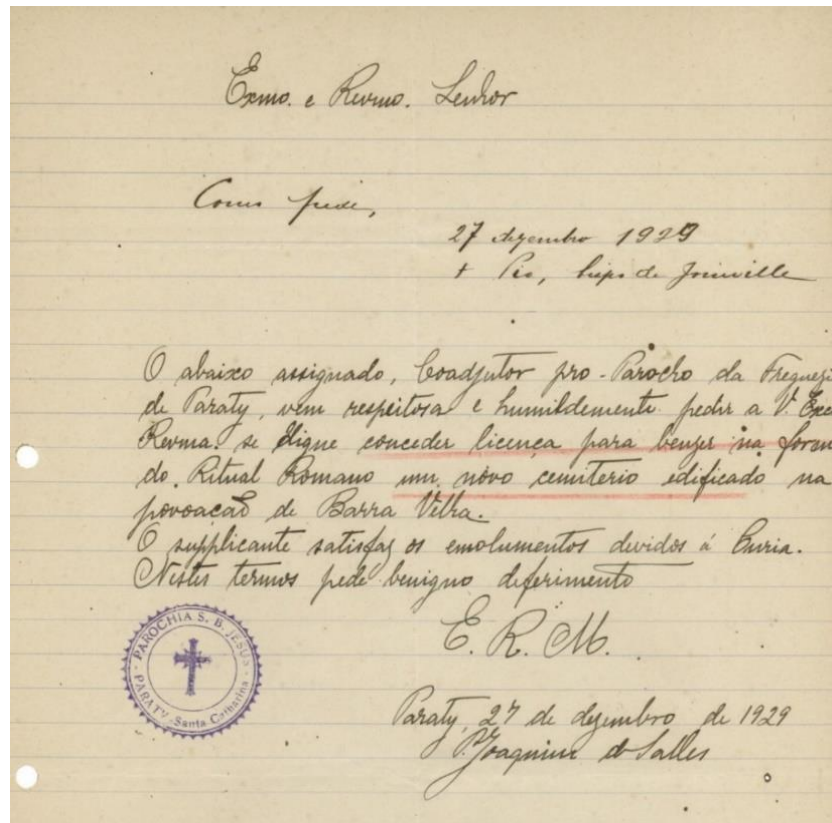 Exmo. e Revmo. Senhor
Como pede,
27 dezembro 1929
+ Pio, bispo de Joinville
O abaixo assignado, Coadjutor pro-Parocho da Freguezi
de Paraty, vem respeitosa e humildemente pedir a V. Exc
Revma. se digne conceder licença para benzer na form
do Ritual Romano um novo cemiterio edificado na
povoacaõ de Barra Velha.
O supplicante satisfaz os emolumentos devidos á Curia.
Nestes termos pede benigno deferimento
E. R. M.
PAROCHIA S. B. JESUS
PARATY - Santa Catharina
Paraty, 27 de dezembro de 1929
P. Joaquim de Salles